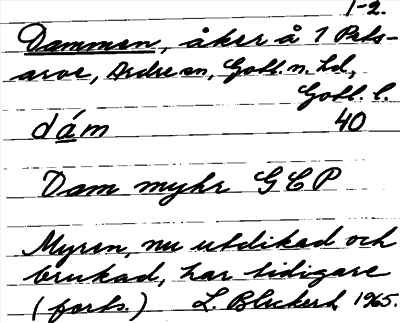 1-2.
Dammen, åker å 1 Pets-
arve, Ardre sn, Gotl. n. hd,
Gotl. l.
dám 40
Dam myhr GCP
Myren, nu utdikad och
brukad, har tidigare
(forts.) L. Bluckert 1965.